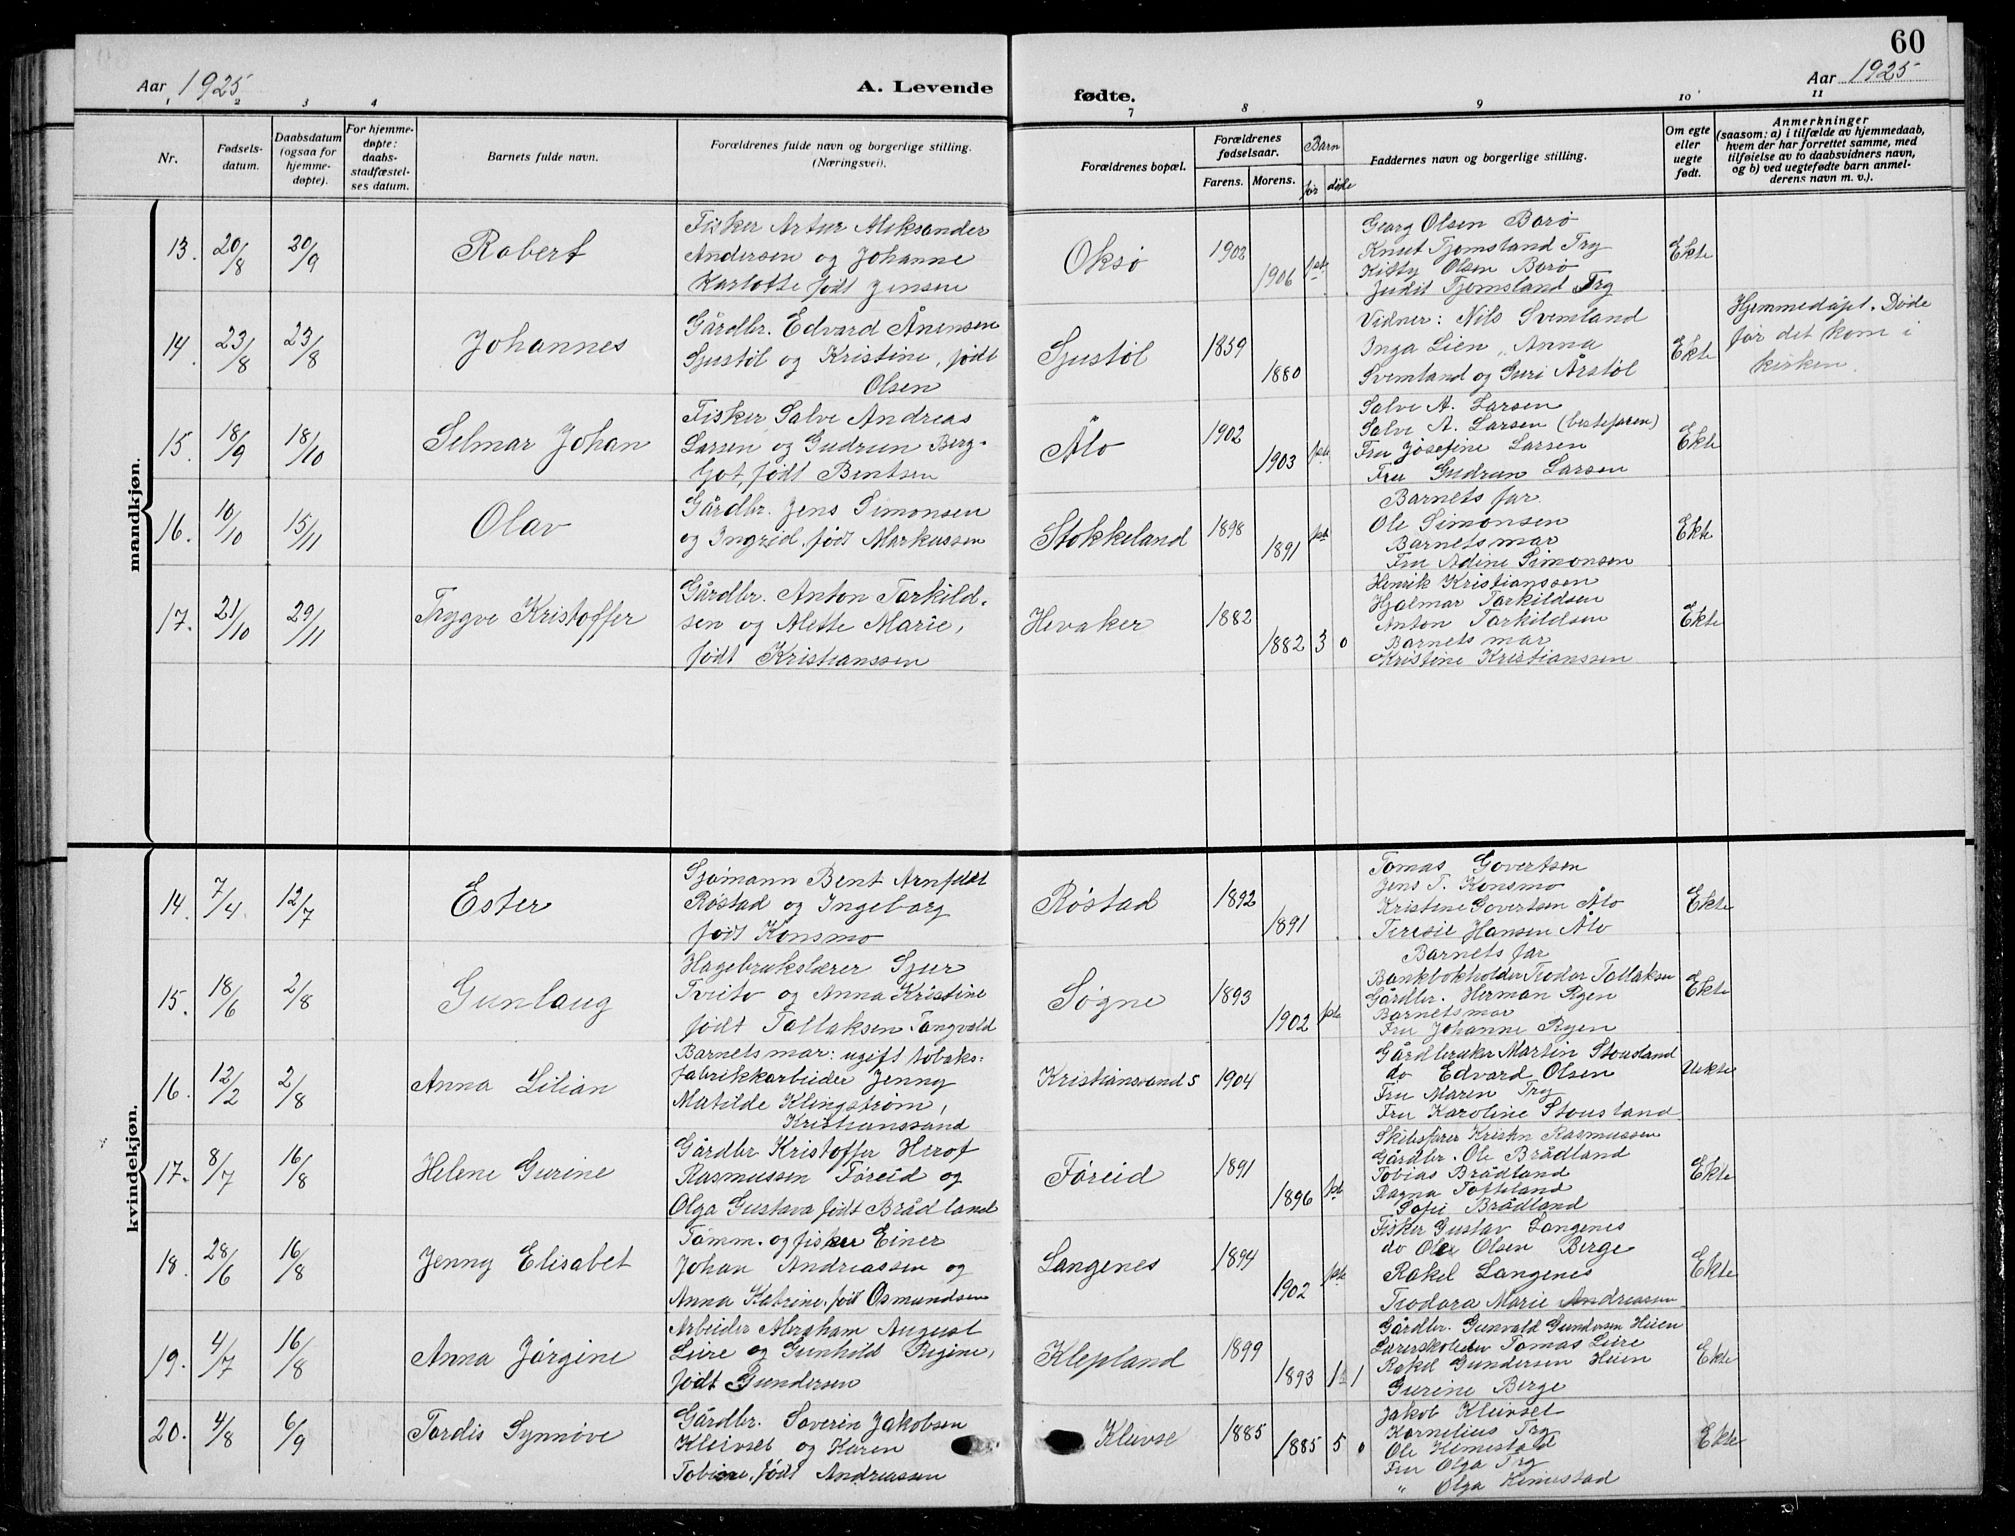 60
Aar 1925
A. Levende
fødte.
Aar 1925
1 2 3 4
7 8 9 10 11
Nr.
Fødsels-
datum.
Daabsdatum
(ogsaa for
hjemme-
døpte).
For hjemme-
døpte:
daabs-
stadfæstel-
ses datum.
Barnets fulde navn.
Forældrenes fulde navn og borgerlige stilling.
(Næringsvei).
Forældrenes bopæl.
Forældrenes
fødselsaar.
Farens. Morens.
Barn
før døde
Faddernes navn og borgerlige stilling.
Om egte
eller
uegte
født.
Anmerkninger
(saasom: a) i tilfælde av hjemmedaab,
hvem der har forrettet samme, med
tilføielse av to daabsvidners navn,
og b) ved uegtefødte barn anmel-
derens navn m. v.).
mandkjøn.
13. 20/8 20/9 Robert
Fisker Artur Aleksander
Andersen og Johanne
Karlotte født Jensen
Oksø 1902 1906 1ste
Georg Olsen Borø
Knut Tjomsland Try
Kitty Olsen Borø
Judit Tjomsland Try
Ekte
14. 23/8 23/8 Johannes
Gårdbr. Edvard Ånensen
Sjustøl og Kristine, født
Olsen
Sjustøl 1859 1880
Vidner: Nils Svemland
Inga Lien, Anna
Svemland og Guri Årstøl
Ekte
Hjemmedøpt. Døde
før det kom i
kirken.
15. 18/9 18/10 Selmar Johan
Fisker Salve Andreas
Larsen og Gudrun Berg-
ljot, født Bentsen
Ålo 1902 1903 1ste
Salve A. Larsen
Salve A. Larsen (bestefaren)
Fru Josefine Larsen
Fru Gudrun Larsen
Ekte
16. 10/10 15/11 Olav
Gårdbr. Jens Simonsen
og Ingrid, født Markussen
Stokkeland 1898 1891 1ste
Barnets far
Ole Simonsen
Barnets mor
Fru Adine Simonsen
Ekte
17. 21/10 29/11 Trygve Kristoffer
Gårdbr. Anton Tarkild-
sen og Alette Marie,
født Kristianssen
Hevaker 1882 1882 3 0
Henrik Kristianssen
Hjalmar Tarkildsen
Anton Tarkildsen
Barnets mor
Kristine Kristianssen
Ekte
kvindekjøn.
14. 7/4 12/7 Ester
Sjømann Bent Arnfeldt
Røstad og Ingeborg
født Konsmo
Røstad 1892 1891
Tomas Govertsen
Jens T. Konsmo
Kristine Govertsen Ålo
Teresie Hansen Ålo
Ekte
15. 18/6 2/8 Gunlaug
Hagebrukslærer Sjur
Tveito og Anna Kristine
født Tallaksen Tangvald
Søgne 1893 1902 1ste
Barnets far
Bankbokholder Teodor Tallaksen
Gårdbr. Herman Ryen
Barnets mor
Fru Johanne Ryen
Ekte
16. 12/2 2/8 Anna Lilian
Barnets mor: ugift tobaks-
fabrikkarbeider Jenny
Matilde Klingstrøm,
Kristianssand
Kristiansand S 1904
Gårdbruker Martin Stousland
do Edvard Olsen
Fru Maren Try
Fru Karoline Stousland
Uekte
17. 8/7 16/8 Helene Gurine
Gårdbr Kristoffer Herof
Rasmussen Føreid og
Olga Gustava født Brådland
Føreid 1891 1896 1ste
Skibsfører Kristn Rasmussen
Gårdbr. Ole Brådland
Tobias Brådland
Ragna Tofteland
Sofie Brådland
Ekte
18. 28/6 16/8 Jenny Elisabet
Tømm. og fisker Einer
Johan Andreassen og
Anna Katrine, født Osmundsen
Langenes 1894 1902 1ste
Fisker Gustav Langenes
do Ole Olsen Berge
Rakel Langenes
Teodora Marie Andreassen
Ekte
19. 4/7 16/8 Anna Jørgine
Arbeider Abraham August
Leire og Gunhild Regine,
født Gundersen
Klepland 1899 1893 1 1
Gårdbr. Gunvald Gundersen Heien
Tomas Leire
Rakel Gundersen Heien
Gurine Berge
Ekte
20. 4/8 6/9 Tordis Synnøve
Gårdbr. Soverin Jakobsen
Kleivset og Karen
Tobine, født Andreassen
Kleivse 1885 1885 5 0
Jakob Kleivset
Kornelius Try
Ole Himestad
Fru Olga Try
" Olga Himestad
Ekte